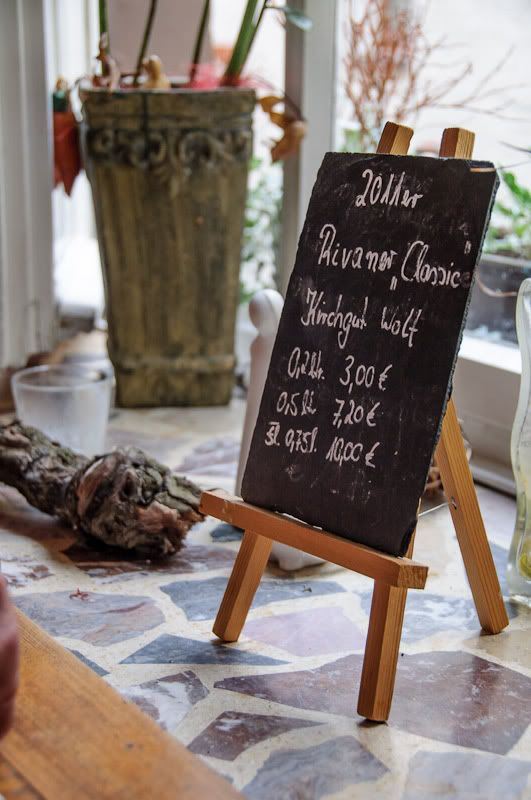 2011er
Rivaner „Classic“
Kirchgut Wolf
0,2ltr. 3,00 €
0,5lt 7,20 €
Fl 0,75l. 10,00 €